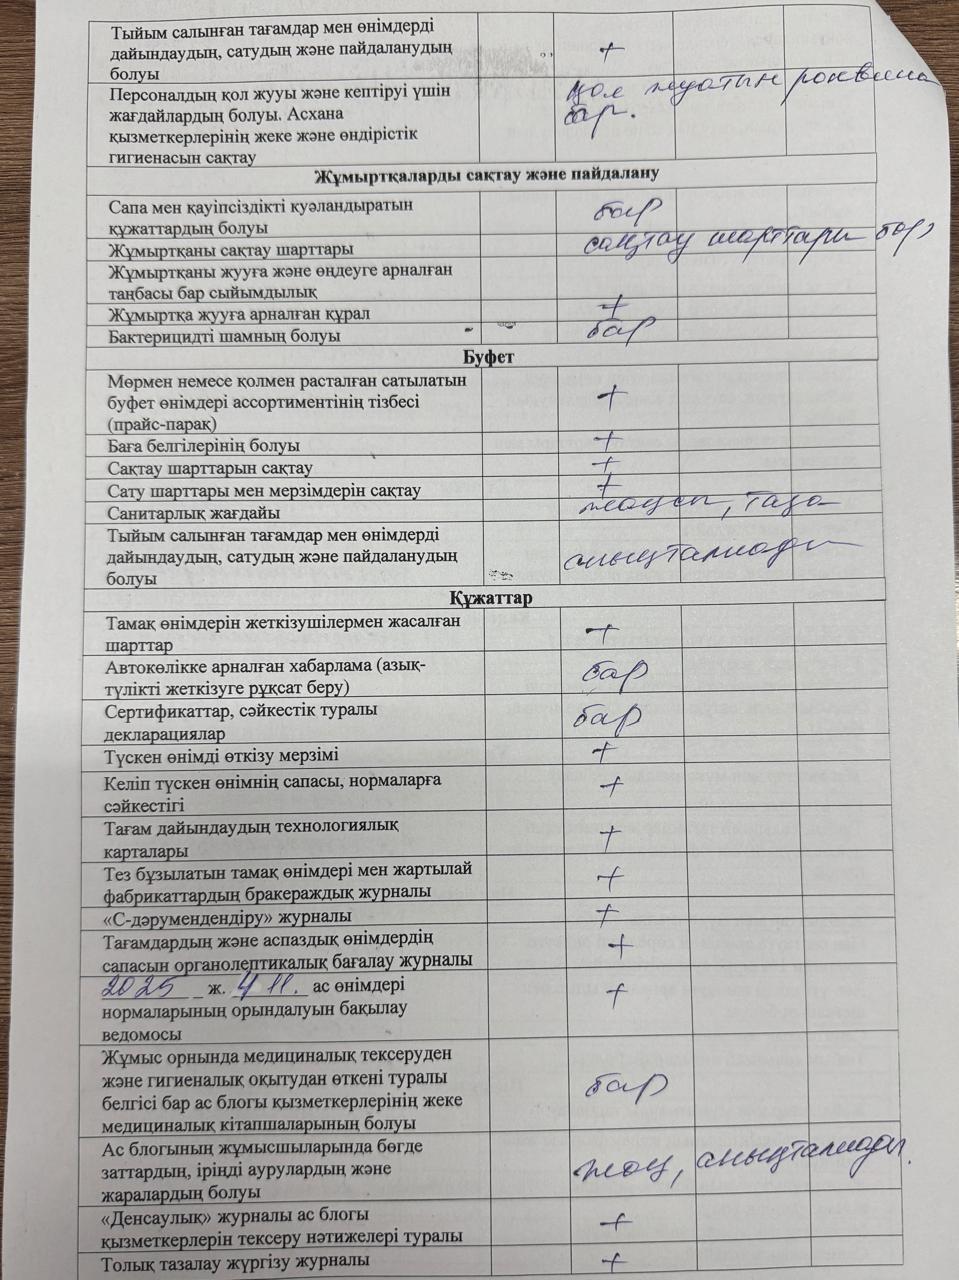 Тыйым салынған тағамдар мен өнімдерді
дайындаудың, сатудың және пайдаланудың
болуы
+
Персоналдың қол жууы және кептіруі үшін
жағдайлардың болуы. Асхана
қызметкерлерінің жеке және өндірістік
гигиенасын сақтау
қол жуатын раковина
бар.
Жұмыртқаларды сақтау және пайдалану
Сапа мен қауіпсіздікті куәландыратын
құжаттардың болуы
бар
Жұмыртқаны сақтау шарттары
сақтау шарттары бар
Жұмыртқаны жууға және өңдеуге арналған
таңбасы бар сыйымдылық
Жұмыртқа жууға арналған құрал
+
Бактерицидті шамның болуы
бар
Буфет
Мөрмен немесе қолмен расталған сатылатын
буфет өнімдері ассортиментінің тізбесі
(прайс-парақ)
+
Баға белгілерінің болуы
+
Сақтау шарттарын сақтау
+
Сату шарттары мен мерзімдерін сақтау
+
Санитарлық жағдайы
жақсы, таза
Тыйым салынған тағамдар мен өнімдерді
дайындаудың, сатудың және пайдаланудың
болуы
анықталмады
Құжаттар
Тамақ өнімдерін жеткізушілермен жасалған
шарттар
+
Автокөлікке арналған хабарлама (азық-
түлікті жеткізуге рұқсат беру)
бар
Сертификаттар, сәйкестік туралы
декларациялар
бар
Түскен өнімді өткізу мерзімі
+
Келіп түскен өнімнің сапасы, нормаларға
сәйкестігі
+
Тағам дайындаудың технологиялық
карталары
+
Тез бұзылатын тамақ өнімдері мен жартылай
фабрикаттардың бракераждық журналы
+
«С-дәрумендендіру» журналы
+
Тағамдардың және аспаздық өнімдердің
сапасын органолептикалық бағалау журналы
+
2025 ж. 4 11. ас өнімдері
нормаларының орындалуын бақылау
ведомосы
+
Жұмыс орнында медициналық тексеруден
және гигиеналық оқытудан өткені туралы
белгісі бар ас блогы қызметкерлерінің жеке
медициналық кітапшаларының болуы
бар
Ас блогының жұмысшыларында бөгде
заттардың, іріңді аурулардың және
жаралардың болуы
жоқ, анықталмады.
«Денсаулық» журналы ас блогы
қызметкерлерін тексеру нәтижелері туралы
+
Толық тазалау жүргізу журналы
+